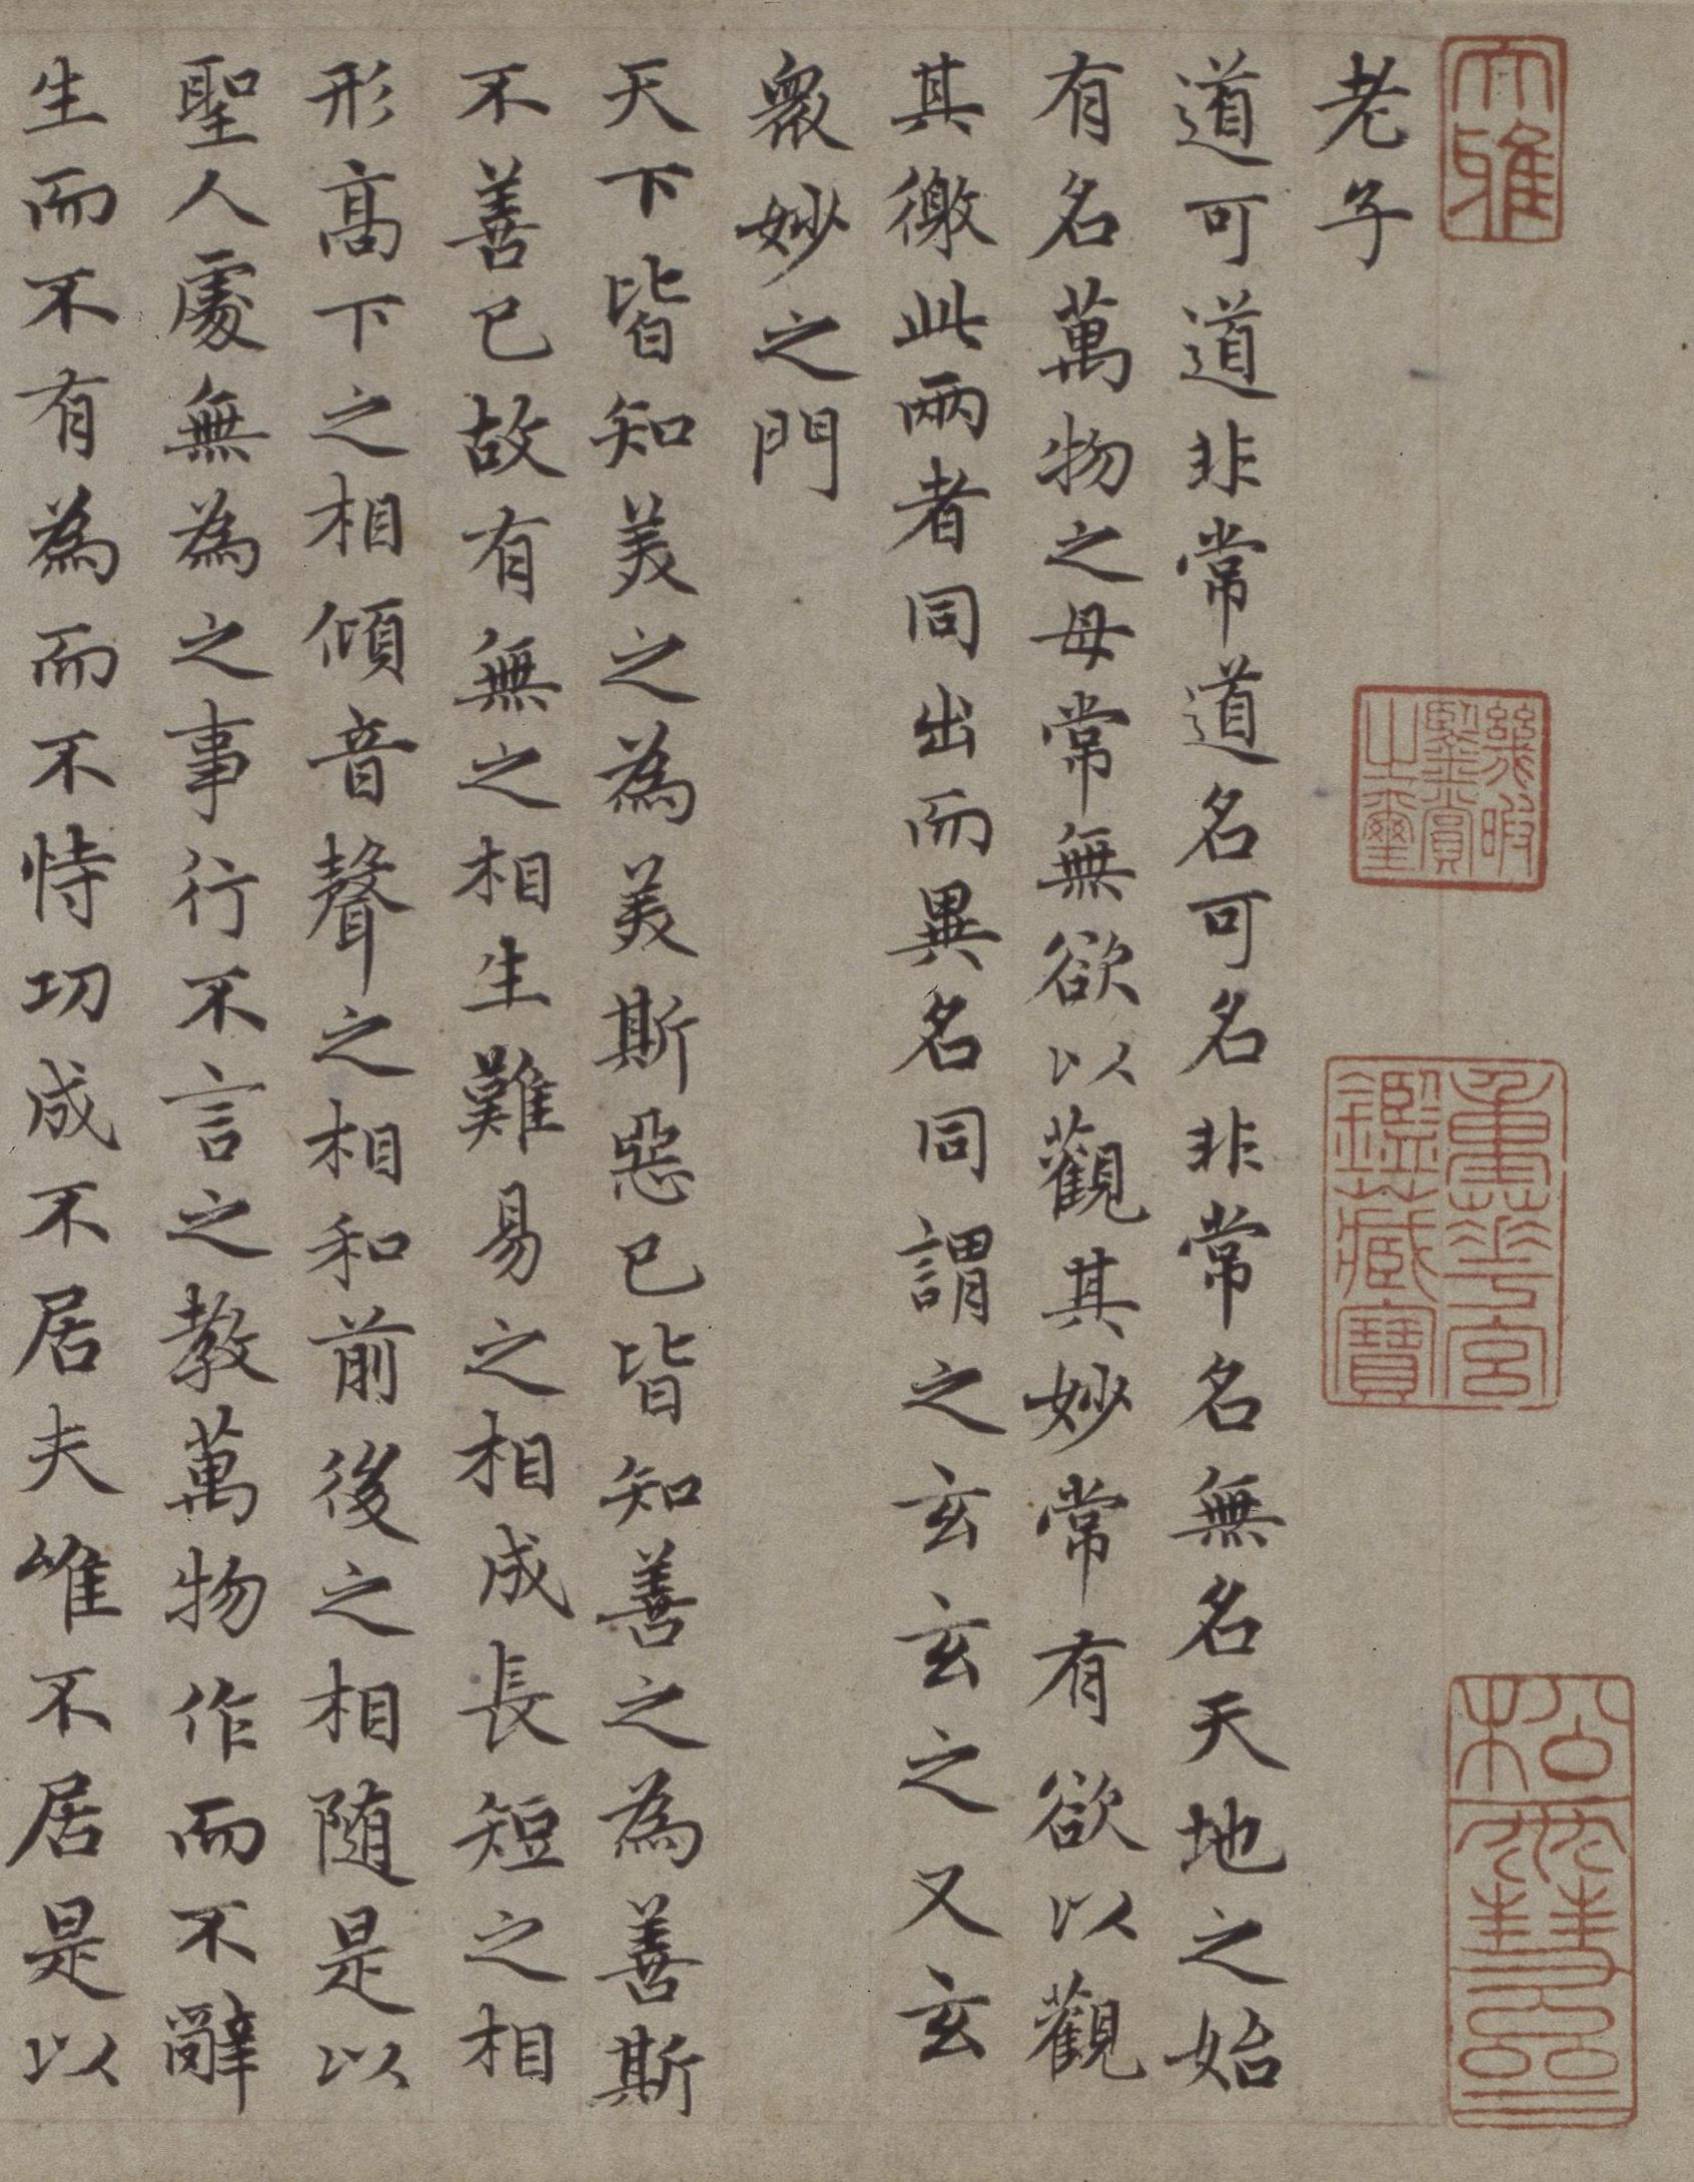 大雅
老子
幾暇
鑒賞
之璽
重華宮
鑑藏寶
松雪齋
道可道非常道名可名非常名無名天地之始
有名萬物之母常無欲以觀其妙常有欲以觀
其徼此兩者同出而異名同謂之玄玄之又玄
衆妙之門
天下皆知美之為美斯惡已皆知善之為善斯
不善已故有無之相生難易之相成長短之相
形高下之相傾音聲之相和前後之相随是以
聖人處無為之事行不言之教萬物作而不辭
生而不有為而不恃功成不居夫唯不居是以